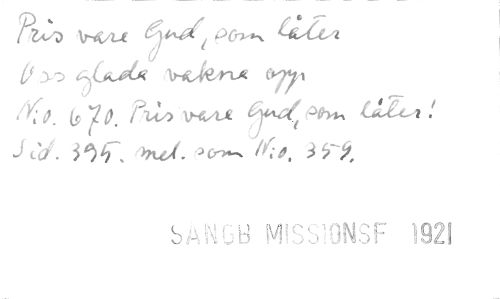 Pris vare Gud, som låter
Oss glada vakna opp
N:o. 670. Pris vare Gud, som låter!
Sid. 395. mel. som N:o. 359.
SÅNGB MISSIONSF 1921